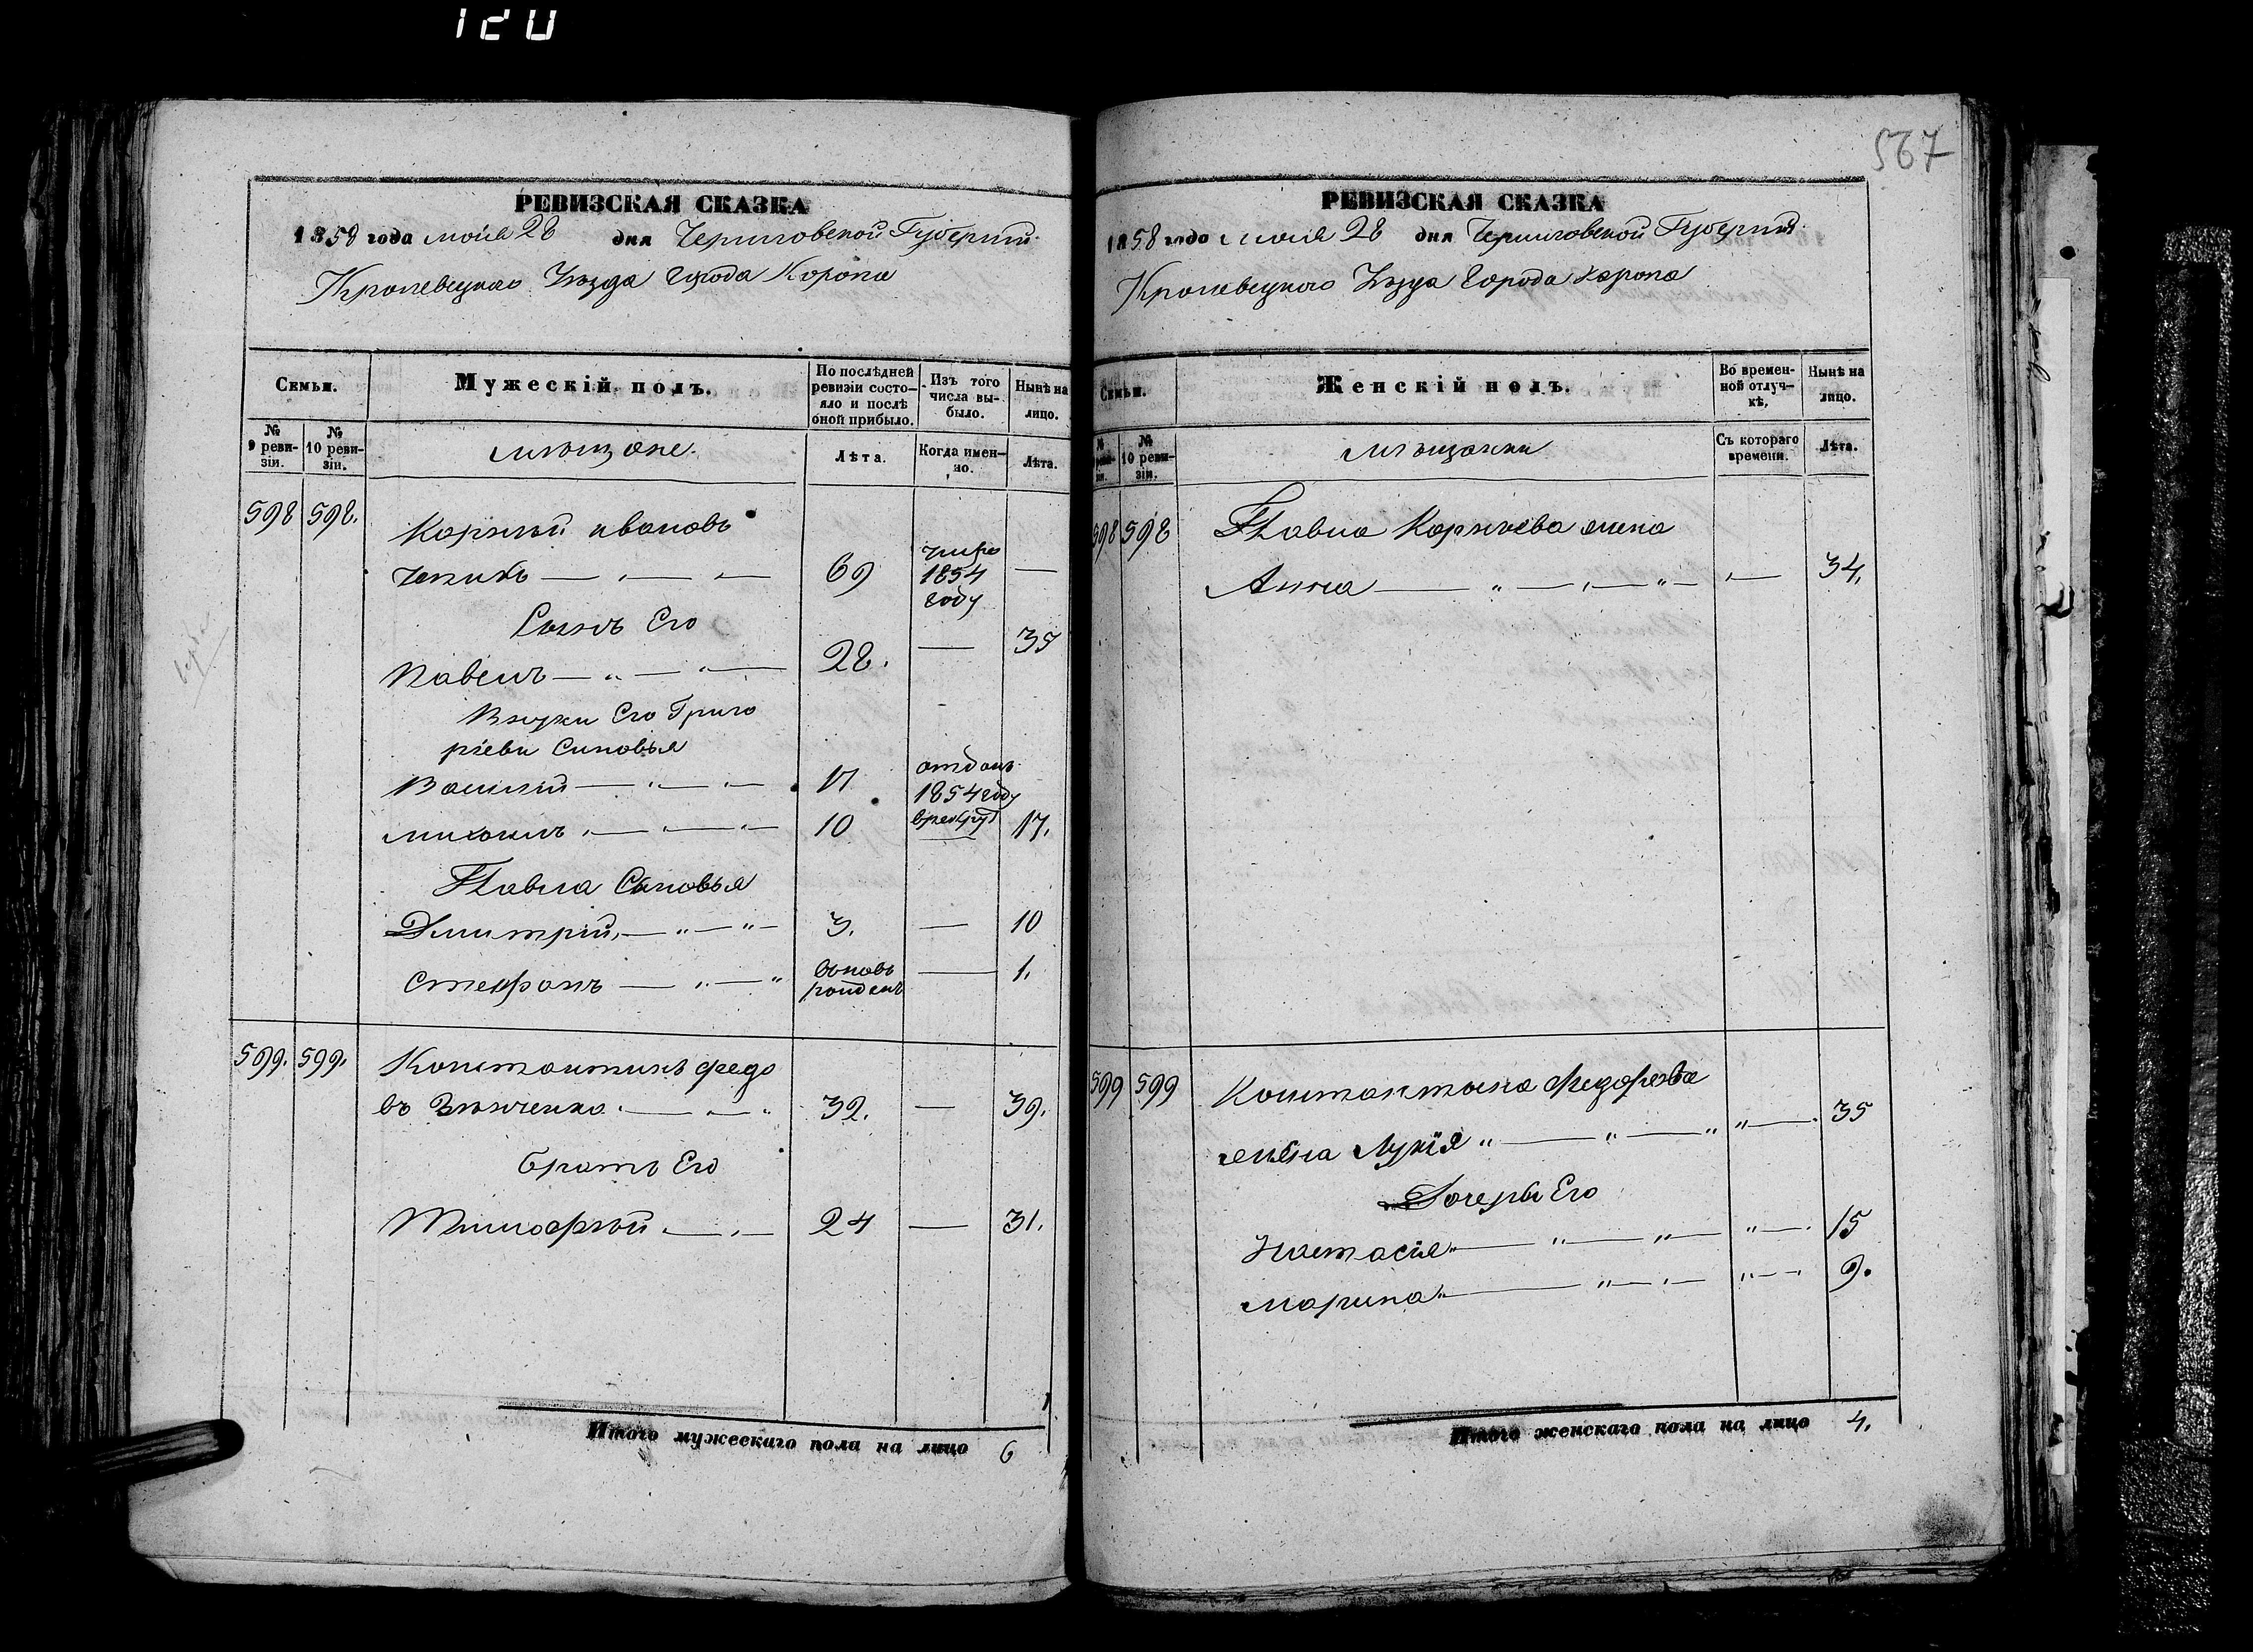 120
567
РЕВИЗСКАЯ СКАЗКА
1858 года маія 28 дня Черниговской Губерніи
Кролевецкаго Уѣзда города Коропа
Семьи.
Мужескій полъ.
По послѣдней ревизіи состояло и послѣ оной прибыло.
Изъ того числа выбыло.
Нынѣ на лицо.
№ 9 ревизіи.
№ 10 ревизіи.
мѣщане.
Лѣта.
Когда именно.
Лѣта.
598 598.
Корнѣй ивановъ
Чепикъ 69 умре 1854 году —
Сынъ Его
Павелъ 28. — 35
Внуки Его Григо
ріеви Синовья
Василій 17 отданъ 1854 году
михаилъ 10 — 17.
Павла Сыновья
Дмитрій 3. — 10
Стефанъ вновь рожденъ — 1.
599. 599.
Константинъ федо
въ 32. — 39.
братъ Его
Тимофѣй 24 — 31.
Итого мужескаго пола на лицо 6
РЕВИЗСКАЯ СКАЗКА
1858 года маія 28 дня Черниговской Губерніи
Кролевецкаго Уѣзда города Коропа
Семьи.
Женскій полъ.
Во временной отлучкѣ,
Нынѣ на лицо.
№ 10 ревизіи.
мѣщанки
Съ котораго времени.
Лѣта.
598 598
Павла Корнѣева жена
Анна 34.
599 599
Константина федорова
жена Лукія 35
Дочери Его
Настасія 15
марина 9.
Итого женскаго пола на лицо 4.